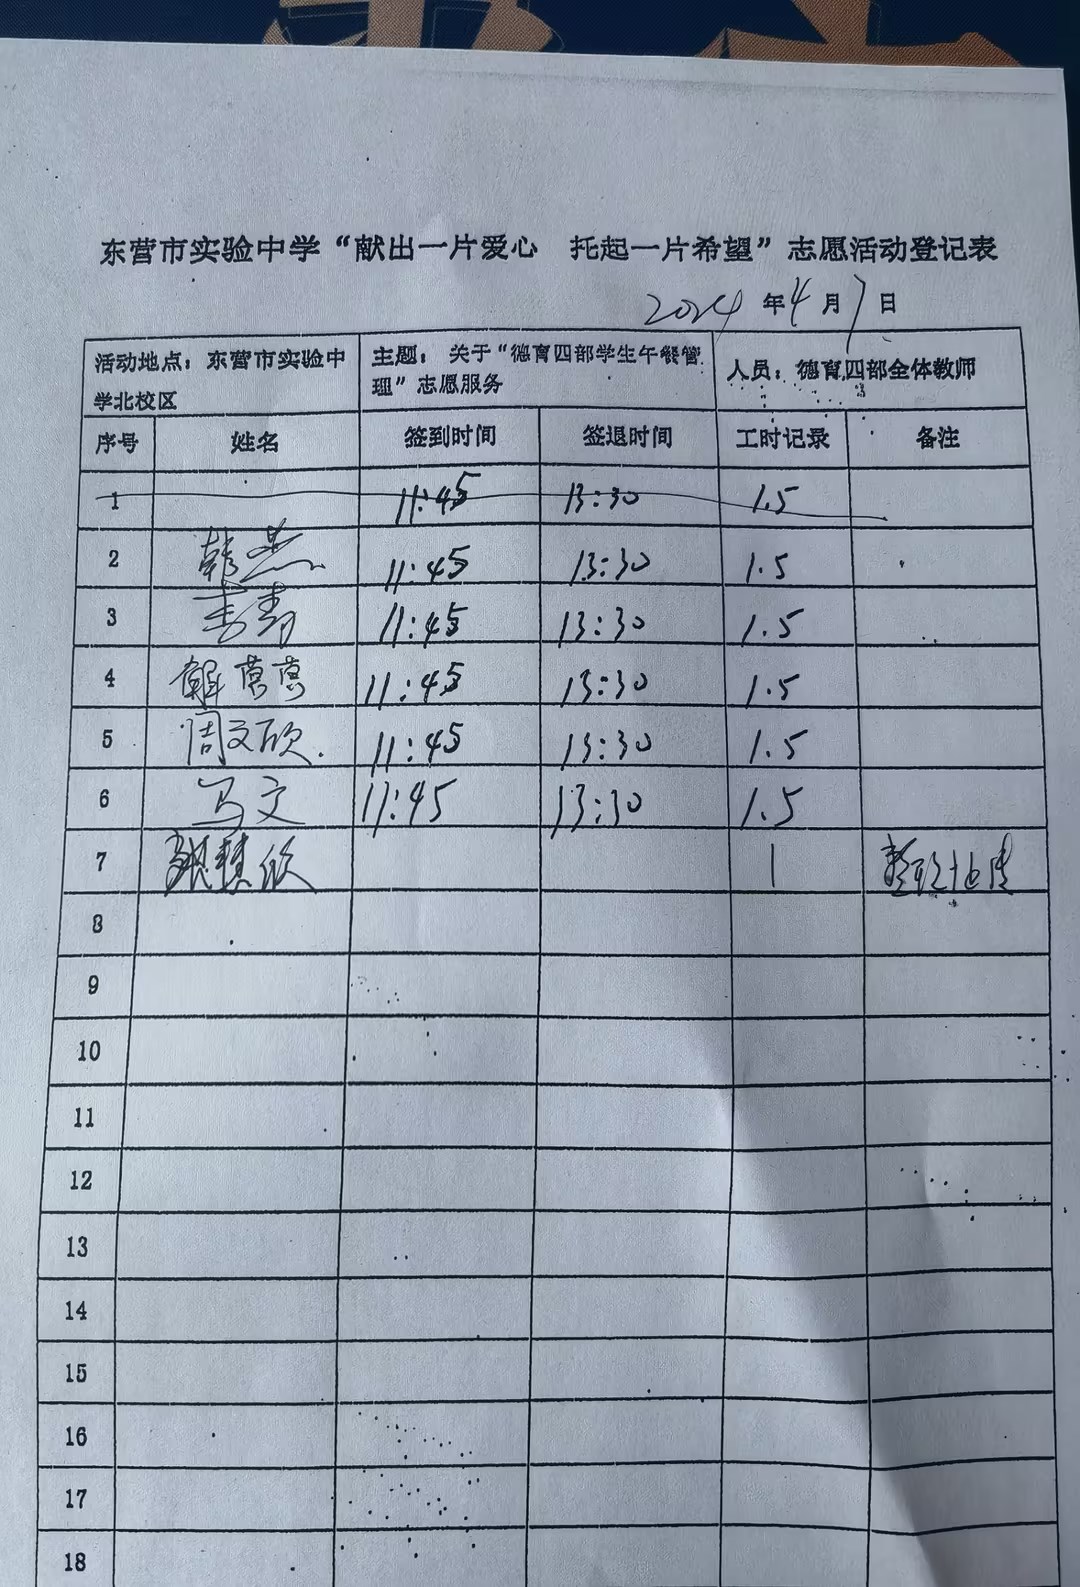 东营市实验中学“献出一片爱心　托起一片希望”志愿活动登记表
2024年4月7日
活动地点：东营市实验中学北校区 主题：关于“德育四部学生午餐管理”志愿服务 人员：德育四部全体教师
序号 姓名 签到时间 签退时间 工时记录 备注
1 11:45 13:30 1.5
2 韩燕 11:45 13:30 1.5
3 李青 11:45 13:30 1.5
4 11:45 13:30 1.5
5 周文欣. 11:45 13:30 1.5
6 马文 11:45 13:30 1.5
7 1
8
9
10
11
12
13
14
15
16
17
18